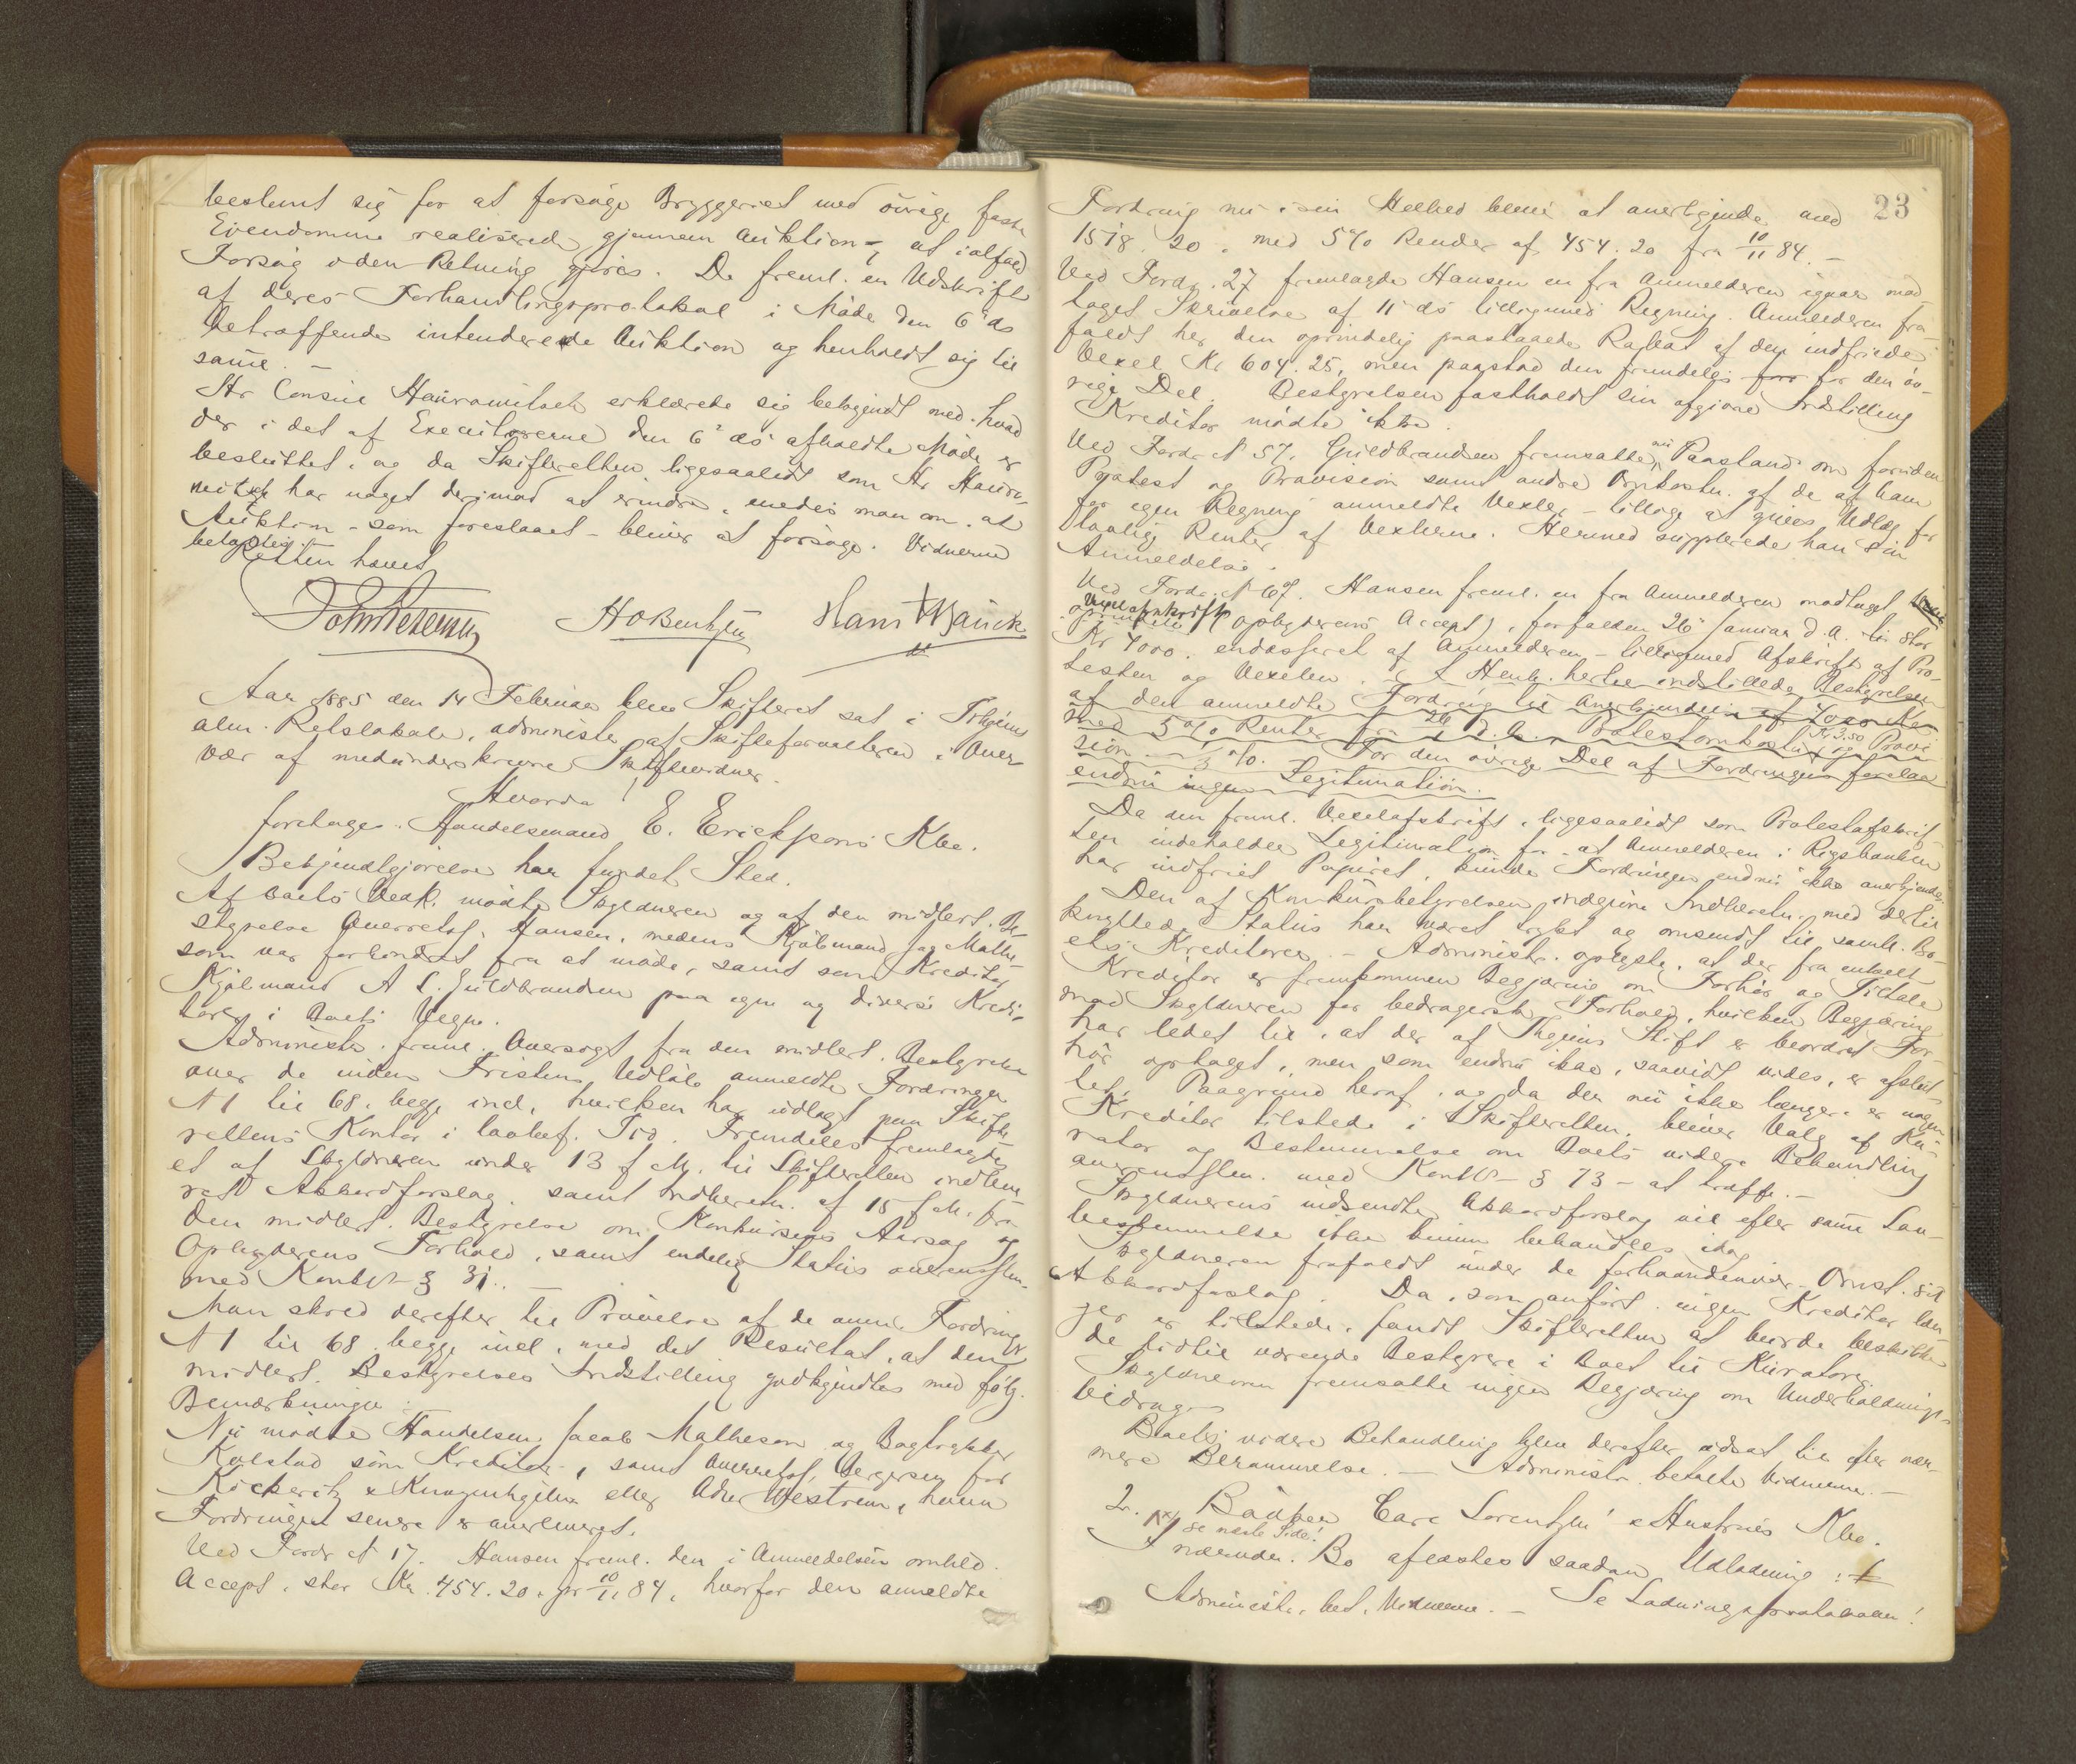 bestemt sig for at forsøge Bryggeriet med øvrige faste
Eiendomme realiseret gjennem Auktion, at ialfald
Forsøg i den Retning gjøres. De freml. en Udskrift
af deres Forhandlingsprotokol i Møde den 6' ds
betræffende intenderede Auktion og henholdt sig til
samme. –
Hr Consul erklærede sig bekjendt med hvad
der i det af Executorerne den 6' ds afholdte Møde er
besluttet, og da Skifteretten ligesaalidt som Hr
har noget derimod at erindre, enedes man om, at
Auktion – som foreslaaet – bliver at forsøge. Vidnerne
betaltes.
Retten hævet
John Petersen H O Bentzen Hans Bäuck
Aar 1885 den 14 Februar blev Skifteret sat i Thjems
alm. Retslokale, administr. af Skifteforvalteren i Over-
vær af medunderskrevne Skiftevidner.
Hvorda
foretoges. Handelsmand E. Ericksons Kbo.
Bekjendtgjørelse har fundet Sted.
Af Boets Vedk. mødte Skyldneren og af den midlert. Be-
styrelse Overretssf. Hansen, medens Kjøbmand Jac Mathe-
son var forhindret fra at møde, samt som Kreditor
Kjøbmand A L. Guldbrandsen paa egne og diverse Kredi-
torer i Boets Vegne.
Administr. freml. Oversigt fra den midlert. Bestyrelse
over de inden Fristens Udløb anmeldte Fordringer
N 1 til 68, begge incl., hvilken har udlagt paa Skifte
rettens Kontor i lovbef. Tid. Fremdeles fremlagdes
et af Skyldneren under 13 f. M. til Skifteretten indleve
ret Akkordforslag, samt Indberetn. af 15 f. M. fra
den midlert. Bestyrelse om Konkursens Aarsag og
Opbyderens Forhold, samt endelig Status overensstem.
med Konkl § 31. –
Man skred derefter til Prøvelse af de anm. Fordring
N 1 til 68 begge incl., med det Resultat, at den
midlert. Bestyrelses Indstilling godkjendtes med følg.
Bemærkninger:
Nu mødte Handelsm. Jacob Matheson og Bogtrykker
Kolstad som Kreditor, samt Overretssf. Bergersen for
Fordringer senere er anerkjendt.
Ved Fordr N 17. Hansen freml. den i Anmeldelsen omhld.
Accept, stor Kr. 454.20, pr 10/11 84, hvorfor den anmeldte
23
Fordring nu i sin Helhed bliver at anerkjende med
1578.20, med 5% Renter af 454.20 fra 10/11 84. –
Ved Fordr. 27 fremlagde Hansen en fra Anmelderen igaar mod-
taget Skrivelse af 11' ds tilligemed Regning. Anmelderen fra-
faldt her den oprindelig paastaaede Rabat af den indfriede
Vexel Kr 604.25, men paastod den fremdeles for for den øv-
rige Del. Bestyrelsen fastholdt sin afgivne Indstilling
Kreditor mødte ikke.
Ved Fordr N 57. Guldbrandsen fremsatte nu Paastand om foruden
Protest og Provision samt andre Omkostn. af de af ham
for egen Regning anmeldte Vexler – tillige at gives Udlæg for
lovlig Renter af Vexlerne. Hermed supplerede han sin
Anmeldelse.
Ved Fordr. N 67. Hansen freml. en fra Anmelderen modtaget
Vexelafskrift (Opbyderens Accept), forfalden 26 Januar d. A. til stor
Kr 7000, endosseret af Anmelderen – tilligemed Afskrift af Pro-
testen og Vexelen. I Henh. hertil indstillede Bestyrelsen
af den anmeldte Fordring til Anerkjendelse af 7000 Kr
med 5% Renter fra 26/1 d. A., Protestomkostn. Kr 3.50 og Provi
sion 1/3 %. For den øvrige Del af Fordringen forelaa
endnu ingen Legitimation.
Da den freml. Vexelafskrift, ligesaalidt som Protestafskrif-
ten indeholder Legitimation for at Anmelderen i Rigsbanken
har indfriet Papiret, kunde Fordringen endnu ikke anerkjendes.
Den af Konkursbestyrelsen indgivne Indberetn. med dertil
knyttede Status har været trykt og omsendt til samtl. Bo-
ets Kreditorer. – Administr. oplyste, at der fra enkelt
Kreditor er fremkommen Begjæring om Forhør og Tiltale
mod Skyldneren for bedragersk Forhold, hvilken Begjæring
har ledet til, at der af Thjems Stift er beordret For-
hør optaget, men som endnu ikke, saavidt vides, er afslut-
tet. Paagrund heraf, og da der nu ikke længere er nogen
Kreditor tilstede i Skifteretten, bliver Valg af Ku-
rator og Bestemmelse om Boets videre Behandling
overensstem. med Konkl – § 73 – at træffe. –
Skyldnerens indsendte Akkordforslag vil efter samme Lov-
bestemmelse ikke kunne behandles idag
Skyldneren frafaldt under de forhaandenvær. Omst. sit
Akkordforslag. Da, som anført, ingen Kreditor læn-
ger er tilstede, fandt Skifteretten at burde beskikke
de hidtil værende Bestyrere i Boet til Kuratorer.
Skyldneren fremsatte ingen Begjæring om Underholdnings-
bidrag.
Boets videre Behandling blev derefter udsat til efter nær-
mere Berammelse. – Administr. betalte Vidnerne. –
2. Bødker Carl Lorentzen & Hustrues Kbo.
se næste Side!
I nærvnde. Bo aflæstes saadan Udlodning:
Administr. bet. Vidnerne. – Se Lodningsprotokollen!